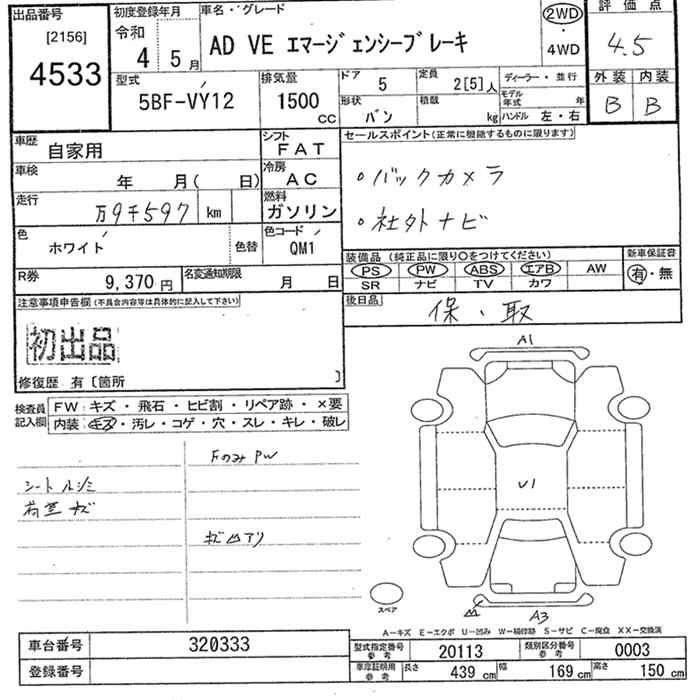 出品番号
[2156]
4533
初度登録年月
令和
4年5月
車名・グレード
AD VE エマージェンシーブレーキ
2WD
・
4WD
評価点
4.5
外装 内装
B B
型式
5BF-VY12
排気量
1500 cc
ドア 5
定員 2[5]人
形状 バン
積載 kg
ディーラー・並行
モデル年式 年
ハンドル 左・右
車歴
自家用
シフト
FAT
車検
年 月( 日)
冷房
AC
走行
万9千597 km
燃料
ガソリン
色
ホワイト
色替
色コード
QM1
R券
9,370円
名変通知期限
月 日
セールスポイント(正常に機能するものに限ります)
・バックカメラ
・社外ナビ
装備品(純正品に限り○をつけてください)
PS PW ABS エアB AW
SR ナビ TV カワ
新車保証書
有・無
後日品
保・取
注意事項申告欄(不具合内容等は具体的に記入して下さい)
初出品
修復歴 有〔箇所 〕
検査員記入欄
FW:キズ・飛石・ヒビ割・リペア跡・×要
内装:キズ・汚レ・コゲ・穴・スレ・キレ・破レ
FのみPW
シートルジミ
荷室キズ
キズ凹アリ
A1
U1
A3
凹
スペア
A－キズ E－エクボ U－凹み W－補修跡 S－サビ C－腐食 XX－交換済
車台番号 320333
登録番号
型式指定番号参考 20113
類別区分番号参考 0003
車庫証明用参考 長さ 439cm 幅 169cm 高さ 150cm